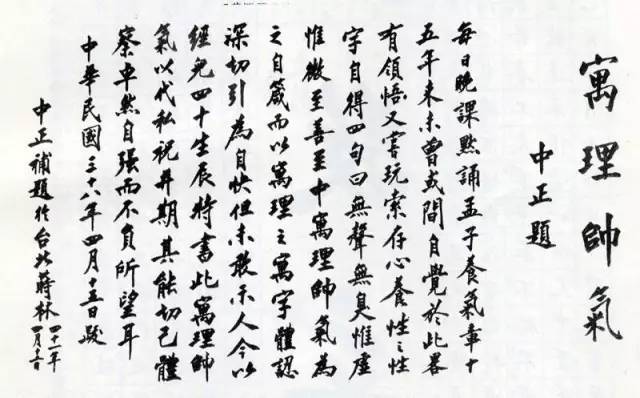 寓理帥氣
中正題
每日晚課默誦孟子養氣章十
五年來未曾或間自覺於此畧
有領悟又嘗玩索存心養性之性
字自得四句曰無聲無臭惟虛
惟微至善至中寓理帥氣為
之自箴而以寓理之寓字體認
深切引為自快但未敢示人今以
經兒四十生辰特書此寓理帥
氣以代私祝并期其能切己體
察卓然自強而不負所望耳
中華民國三十八年四月十五日跋
中正補題於台北林
四十一年
四月日